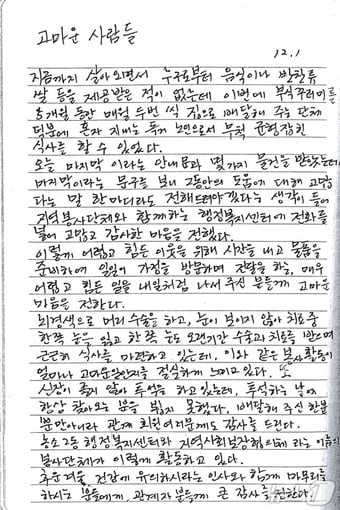 고마운 사람들
12.1
지금까지 살아오면서 누구로부터 음식이나 반찬류
쌀 등을 제공받은 적이 없는데 이번에 부식꾸러미를
5개월 동안 매월 두번 씩 집으로 배달해 주는 단체
덕분에 혼자 지내는 독거 노인으로서 무척 균형잡힌
식사를 할 수 있었다.
오늘 마지막 이라는 안내문과 몇가지 물건을 받았는데
마지막이라는 문구를 보니 그동안의 도움에 대해 고맙
다는 말 한마디라도 전해드려야겠다는 생각이 들어
지역봉사단체와 함께하는 행정복지센터에 전화를
넣어 고맙고 감사한 마음을 전했다.
이렇게 어렵고 힘든 이웃을 위해 시간을 내고 물품을
준비하여 일일이 가정을 방문하며 전달을 하는, 매우
어렵고 힘든 일을 내일처럼 나서 주신 분들께 고마운
마음을 전한다.
뇌경색으로 머리수술을 하고, 눈이 보이지 않아 치료중
한쪽 눈을 잃고 한쪽 눈도 오랜기간 수술과 치료를 받으며
근근히 식사를 마련하고 있는데, 이와 같은 봉사활동이
얼마나 고마운일인지를 절실하게 느끼고 있다. 또
신장이 좋지 않아 투석을 하고 있는데, 투석하는 날에
항상 찾아오는 분을 뵙지 못했다. 배달해 주신 한분
뿐만아니라 관계 회원여러분께도 감사를 드린다.
농소2동 행정복지센터와 지역사회보장협의체 라는 이름의
봉사단체가 이렇게 활동하고 있다.
추운겨울, 건강에 유의하시라는 인사와 함께 마무리를
하시는 분들에게, 관계자 분들께 큰 감사를 전한다.
뉴스1